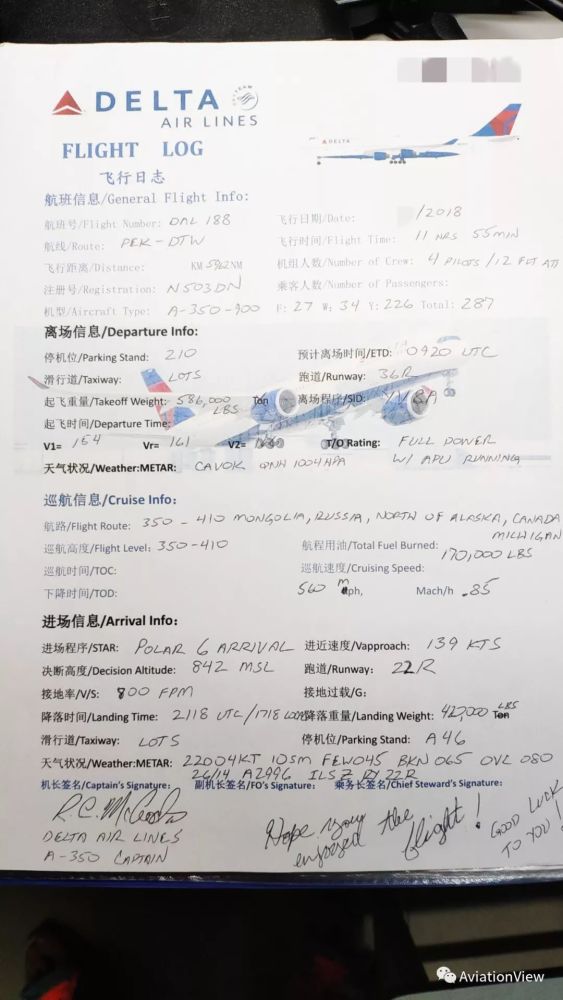 DELTA
AIR LINES
FLIGHT LOG
飞行日志
航班信息/General Flight Info:
航班号/Flight Number: DAL 188 飞行日期/Date: /2018
航线/Route: PEK-DTW 飞行时间/Flight Time: 11 HRS 55 MIN
飞行距离/Distance: KM 5962 NM 机组人数/Number of Crew: 4 PILOTS/12 FLT ATT
注册号/Registration: N503DN 乘客人数/Number of Passengers:
机型/Aircraft Type: A-350-900 F: 27 W: 34 Y: 226 Total: 287
离场信息/Departure Info:
停机位/Parking Stand: 210 预计离场时间/ETD: 0920 UTC
滑行道/Taxiway: LOTS 跑道/Runway: 36R
起飞重量/Takeoff Weight: 586,000 LBS Ton 离场程序/SID:
起飞时间/Departure Time:
V1= 154 Vr= 161 V2= T/O Rating: FULL POWER
W/ APU RUNNING
天气状况/Weather:METAR: CAVOK QNH 1004 HPA
巡航信息/Cruise Info:
航路/Flight Route: 350-410 MONGOLIA, RUSSIA, NORTH OF ALASKA, CANADA
MICHIGAN
巡航高度/Flight Level: 350-410 航程用油/Total Fuel Burned: 170,000 LBS
巡航时间/TOC: 巡航速度/Cruising Speed:
下降时间/TOD: 560 mph, Mach/h .85
进场信息/Arrival Info:
进场程序/STAR: POLAR 6 ARRIVAL 进近速度/Vapproach: 139 KTS
决断高度/Decision Altitude: 842 MSL 跑道/Runway: 22R
接地率/V/S: 800 FPM 接地过载/G:
降落时间/Landing Time: 2118 UTC/1718 LOCAL 降落重量/Landing Weight: 427,000 LBS Ton
滑行道/Taxiway: LOTS 停机位/Parking Stand: A46
天气状况/Weather:METAR: 22004KT 10SM FEW045 BKN065 OVC 080
26/14 A2996 ILS Z RY 22R
机长签名/Captain's Signature: 副机长签名/FO's Signature: 乘务长签名/Chief Steward's Signature:
DELTA AIR LINES
A-350 CAPTAIN
Hope you enjoyed the flight!
GOOD LUCK TO YOU!
AviationView